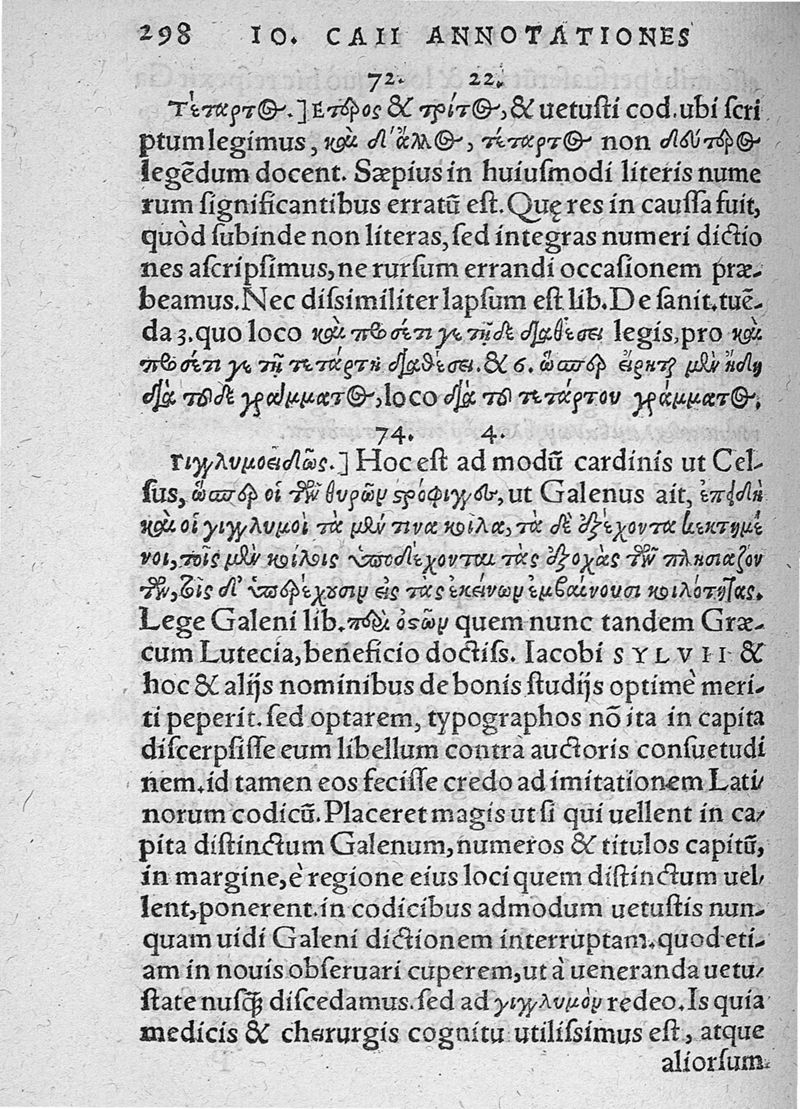 298 IO. CAII ANNOTATIONES
72. 22.
Τέταρτος.] Ετερος & τρίτος, & uetusti cod. ubi scri
ptum legimus, καὶ δ' ἄλλος, τέταρτος non δεύτερος
legẽdum docent. Sæpius in huiusmodi literis nume
rum significantibus erratũ est. Quę res in caussa fuit,
quòd subinde non literas, sed integras numeri dictio
nes ascripsimus, ne rursum errandi occasionem præ-
beamus. Nec dissimiliter lapsum est lib. De sanit. tuẽ-
da 3. quo loco καὶ προσέτι γε τῇδε διαθέσει legis, pro καὶ
προσέτι γε τῇ τετάρτῃ διαθέσει. & 6. ὥσπερ εἴρηται μὲν ἤδη
διὰ τοῦδε γράμματος, loco διὰ τοῦ τετάρτου γράμματος.
74. 4.
Γιγγλυμοειδῶς.] Hoc est ad modũ cardinis ut Cel-
sus, ὥσπερ οἱ τῶν θυρῶν στρόφιγγες, ut Galenus ait, ἐπειδὴ
καὶ οἱ γιγγλυμοὶ τὰ μέν τινα κοῖλα, τὰ δὲ ἐξέχοντα κεκτημέ
νοι, τοῖς μὲν κοίλοις ὑποδέχονται τὰς ἐξοχὰς τῶν πλησιαζόν
των, τοῖς δ' ὑπερέχουσιν εἰς τὰς ἐκείνων ἐμβαίνουσι κοιλότητας.
Lege Galeni lib. περὶ ὀστῶν quem nunc tandem Græ-
cum Lutecia, beneficio doctiss. Iacobi SYLVII &
hoc & alijs nominibus de bonis studijs optimè meri-
ti peperit. sed optarem, typographos nõ ita in capita
discerpsisse eum libellum contra auctoris consuetudi
nem. id tamen eos fecisse credo ad imitationem Lati-
norum codicũ. Placeret magis ut si qui uellent in ca-
pita distinctum Galenum, numeros & titulos capitũ,
in margine, è regione eius loci quem distinctum uel-
lent, ponerent. in codicibus admodum uetustis nun-
quam uidi Galeni dictionem interruptam. quod eti-
am in nouis obseruari cuperem, ut à ueneranda uetu-
state nusq̃ discedamus. sed ad γιγγλυμὸν redeo. Is quia
medicis & cherurgis cognitu utilissimus est, atque
aliorsum